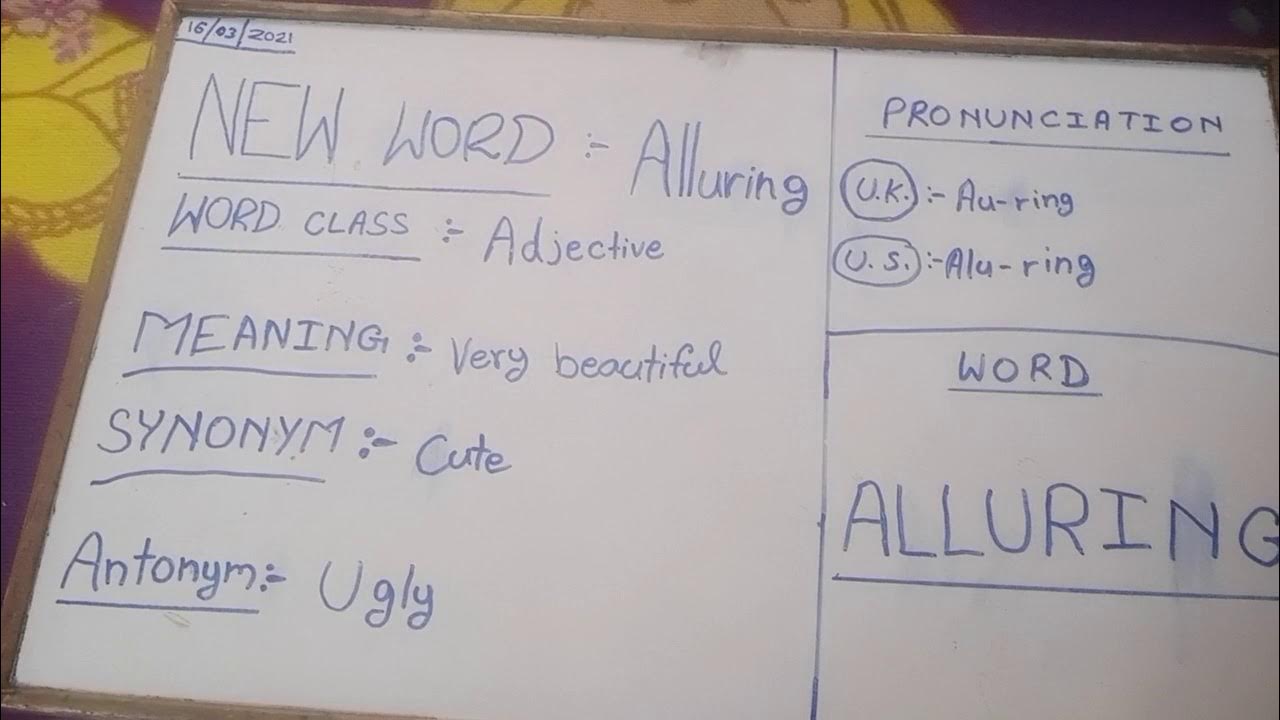 16/03/2021
NEW WORD :- Alluring
WORD CLASS :- Adjective
MEANING :- Very beautiful
SYNONYM :- Cute
Antonym :- Ugly
PRONUNCIATION
U.K. :- Au-ring
U.S. :- Alu-ring
WORD
ALLURING